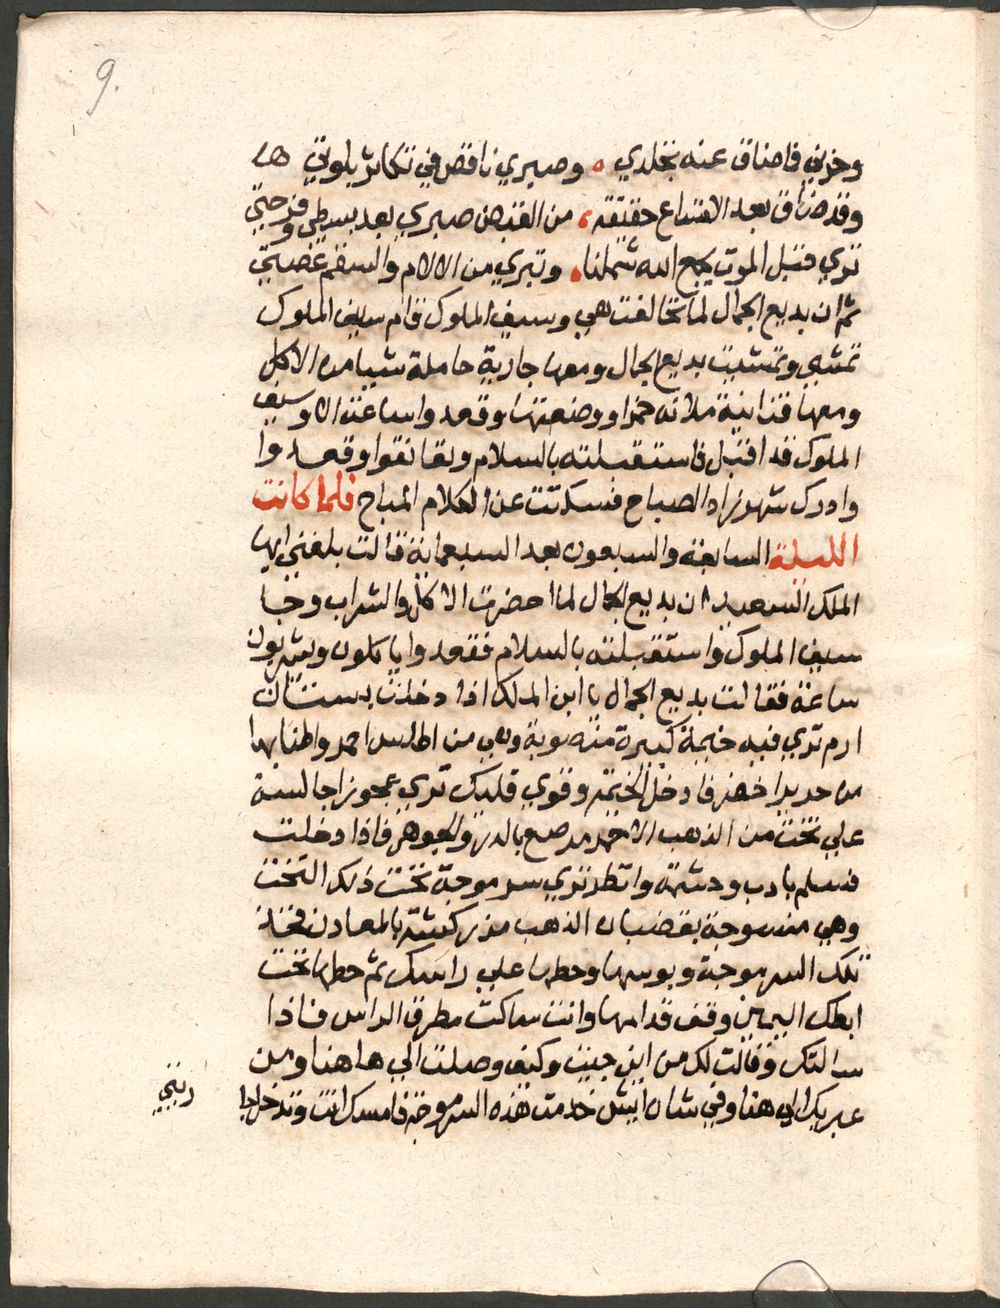 9.
وحزني فاضناق عنه تجلدي ٥ وصبري ناقص في تكاثر بلوتي
وقد ضاق بعد الاتساع حقيقة ، من القبض صبري بعد بسطي وفرحتي
تري قبل الموت يجمع الله شملنا ، وتبري من الالام والسقم غصتي
ثم ان بديع الجمال لما تحالفت هي وسيف الملوك قام سيف الملوك
تمشي وتمشيت بديع الجمال ومعها جارية حاملة شيا من الاكل
ومعها قنانية ملانه خمرا ووضعتها وقعدوا ساعة الا وسيف
الملوك قد اقبل فاستقبلته بالسلام وتعانقوا وقعدوا
وادرك شهرزاد الصباح فسكتت عن الكلام المباح فلما كانت
الليلة السابعة والسبعون بعد السبعماية قالت بلغني ايها
الملك السعيد ان بديع الجمال لما احضرت الاكل والشراب وجا
سيف الملوك واستقبلته بالسلام فقعدوا ياكلون ويشربون
ساعة فقالت بديع الجمال يا ابن الملك اذا دخلت بستان
ارم تري فيه خيمة كبيرة منصوبة وهي من اطلس احمر واطنابها
من حرير اخضر فادخل الخيمة وقوي قلبك تري عجوز اجالسة
علي تخت من الذهب الاحمر مرصع بالدر والجوهر فاذا دخلت
فسلم بادب وحشمة وانظر تري سرموجة تحت ذلك التخت
وهي منسوجة بقضبان الذهب مزركشة بالمعادن فخذ
تلك السرموجة وبوسها وحطها علي راسك ثم حطها تحت
ابطك اليمين وقف قدامها وانت ساكت مطرق الراس فاذا
سالتك وقالت لك من اين جيت وكيف وصلت الي ها هنا ومن
عبر بك الي هنا وفي شان ايش خدمت هذه السرموجة فامسك انت وتدخل لها
ربتي